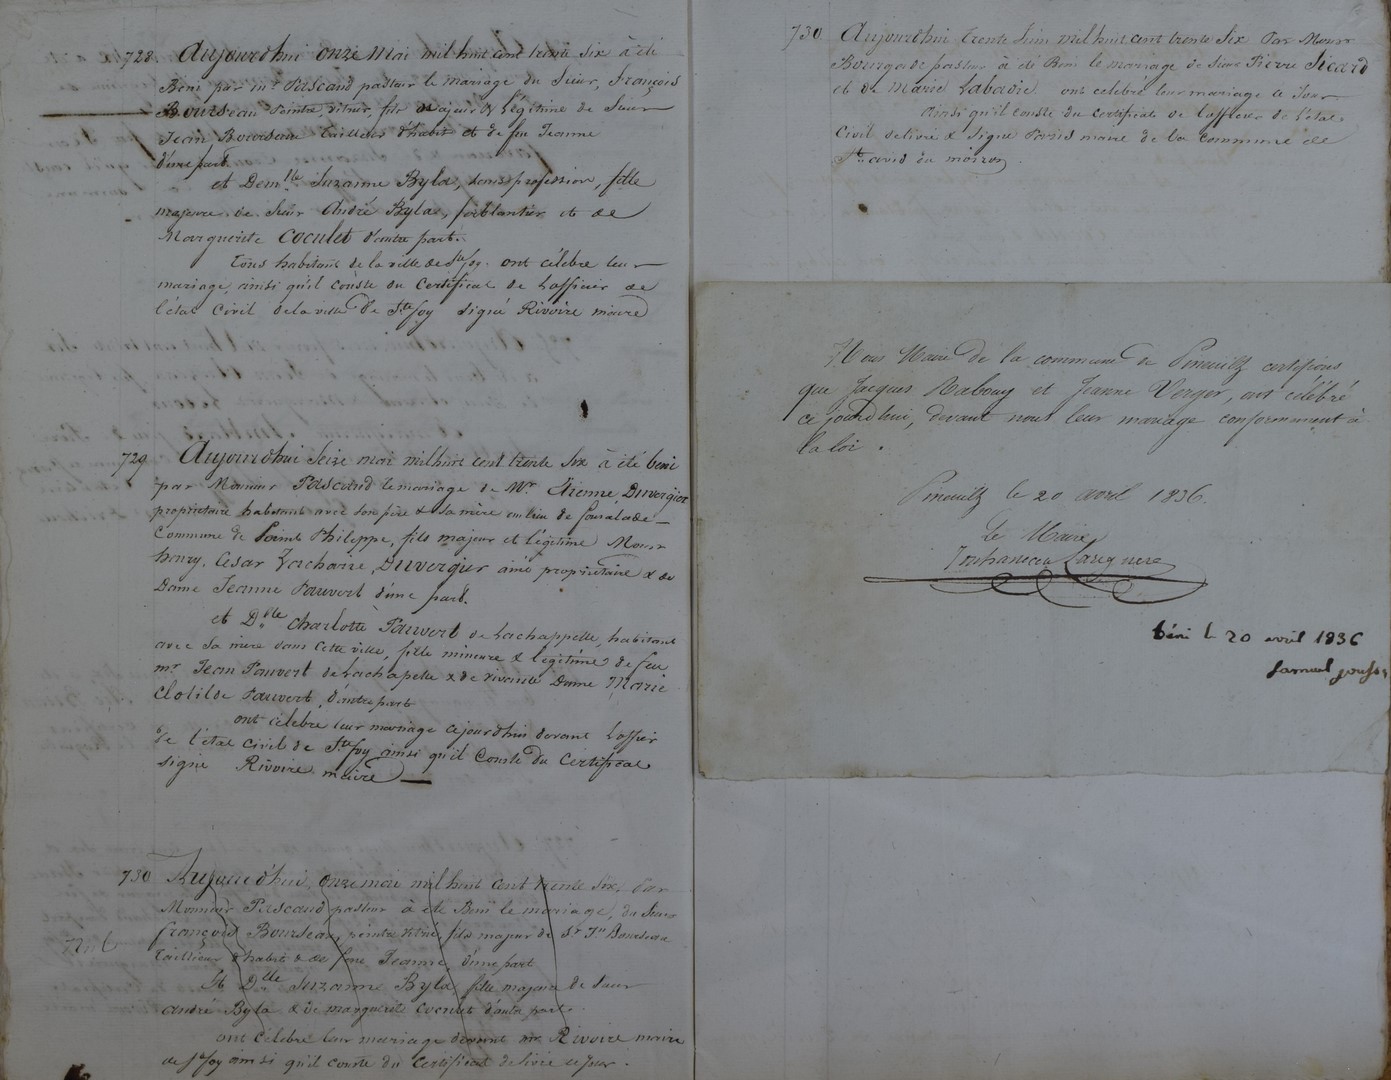 728 Aujourdhui onze mai mil huit cent trente six à été
Beni par mr Pascaud pasteur le mariage du Sieur, François
Bourseau peintre, vitrier, fils majeur & légitime de Sieur
Jean Bourseau tailleur d'habit et de feu Jeanne
d'une part
et Demlle Suzanne Byla, sans profession, fille
majeure de Sieur André Byla, ferblantier et de
Marguerite Coculet d'autre part.
tous habitant de la ville de Ste foy. ont célébré leur
mariage, ainsi qu'il conste du Certificat de Lofficier de
l'état Civil de la ville de Ste foy signé Rivoire maire
729 Aujourdhui Seize mai mil huit cent trente Six à été beni
par Monsieur Pascaud le mariage de Mr Etienne, Duvergier
propriétaire habitant avec son père & sa mère au lieu de
Commune de Saint Philippe, fils majeur et légitime Monsr
henry, Cesar Zacharie, Duvergier ainé propriétaire & de
Dame Jeanne Pauvert d'une part.
et Dlle Charlotte Pauvert de Lachappelle, habitant
avec Sa mère dans cette ville, fille mineure & légitime de feu
mr Jean Pauvert de Lachapelle & de vivante Dame Marie
Clotilde Pauvert, d'autre part
ont célébré leur mariage cejourdhui devant Lofficier
de l'état Civil de Ste foy ainsi qu'il Conste du Certificat
signé Rivoire maire
730 Aujourd'hui onze mai mil huit cent trente six, Par
Monsieur Pascaud pasteur à été Beni le mariage, du Sieur
françois Bourseau, peintre vitrié, fils majeur de Sr Jn Bourseau
tailleur d'habit & de feue Jeanne, d'une part
Et Dlle Suzanne Byla, fille majeure de Sieur
André Byla & de marguerite Coculet d'autre part.
nul
ont célébré leur mariage devant mr Rivoire maire
de Ste foy ainsi qu'il conste du Certificat délivré ce jour.
730 Aujourdhui trente Juin mil huit cent trente Six Par Monsr
Bourgade pasteur à été Beni le mariage de Sieur Pierre Sicard
et de Marie Labadie ont célébré leur mariage ce Jour
Ainsi qu'il conste du certificat de Lofficier de l'état
Civil délivré & signé maire de la Commune de
St avid du moiron
Nous Maire de la commune de Pineuilh certifions
que Jacques Rabouy et Jeanne Verger, ont célébré
ce jourd'hui, devant nous leur mariage conformément à
la loi.
Pineuilh le 20 avril 1836.
Le Maire
béni le 20 avril 1836
Samuel